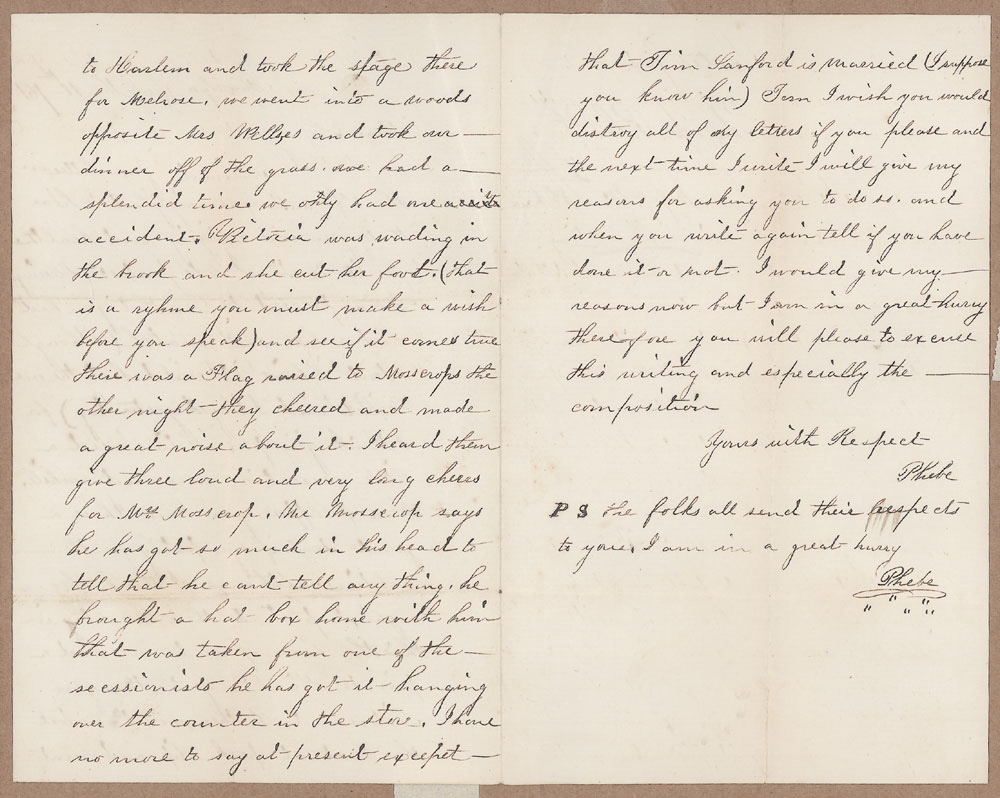 to Harlem and took the stage there
for Melrose. we went into a woods
opposite Mrs Willses and took our —
dinner off of the grass. we had a —
splendid time. we only had one
accident. Victoria was wading in
the brook and she cut her foot. (that
is a ryhme you must make a wish
before you speak) and see if it comes true
there was a Flag raised to Mosscrops the
other night they cheered and made
a great noise about it. I heard them
give three loud and very long cheers
for Mr Mosscrop. Mr Mosscrop says
he has got so much in his head to
tell that he cant tell any thing. he
brought a hat box home with him
that was taken from one of the —
secessionists he has got it hanging
over the counter in the store. I have
no more to say at present excepet —
that Tim Sanford is married (I suppose
you know him) Tom I wish you would
distroy all of my letters if you please and
the next time I write I will give my
reasons for asking you to do so. and
when you write again tell if you have
done it or not. I would give my —
reasons now but I am in a great hurry
therefore you will please to excuse
this writing and especially the —
composition
Yours with Respect
Phebe
P S the folks all send their respects
to you. I am in a great hurry
Phebe